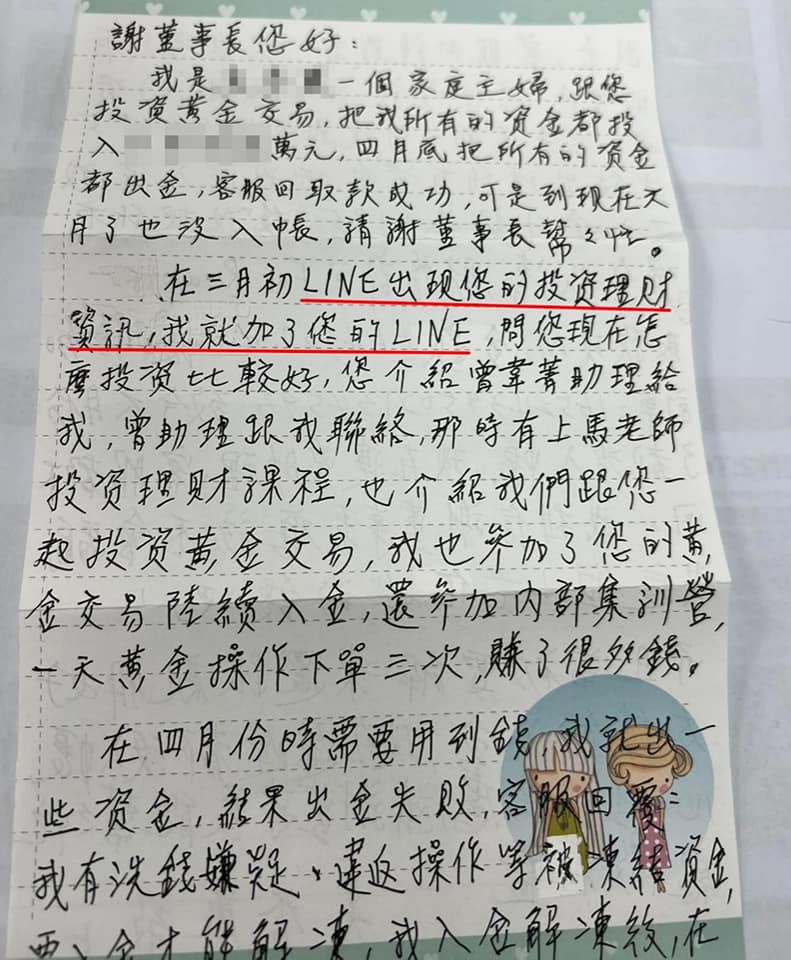 謝董事長您好：
我是 一個家庭主婦，跟您
投資黃金交易，把我所有的資金都投
入 萬元，四月底把所有的資金
都出金，客服回取款成功，可是到现在六
月了也没入帳，請謝董事長幫幫忙。
在三月初LINE出现您的投资理財
資訊，我就加了您的LINE，問您現在怎
麼投资比較好，您介紹曾葦菁助理給
我，曾助理跟我聯絡，那時有上馬老師
投资理財課程，也介紹我們跟您一
起投资黃金交易，我也參加了您的黃
金交易陸續入金，還參加内部集訓營，
一天黃金操作下單三次，賺了很多錢。
在四月份時需要用到錢 我就出一
些资金，結果出金失败，客服回覆：
我有洗錢嫌疑、違返操作等被凍結资金，
要入金才能解凍，我入金解凍後，在